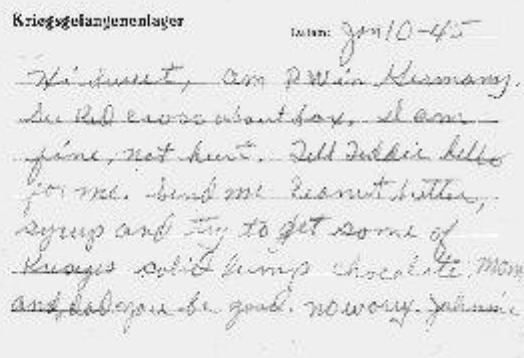 Kriegsgefangenenlager Datum: Jan 10-45
Hi sweet, am P W in Germany.
See Red cross about box. I am
fine, not hurt. Tell Teddie hello
for me. Send me Peanut butter,
syrup and try to get some of
solid lump chocolate. Mom
and Dad you be good. no worry. Johnnie